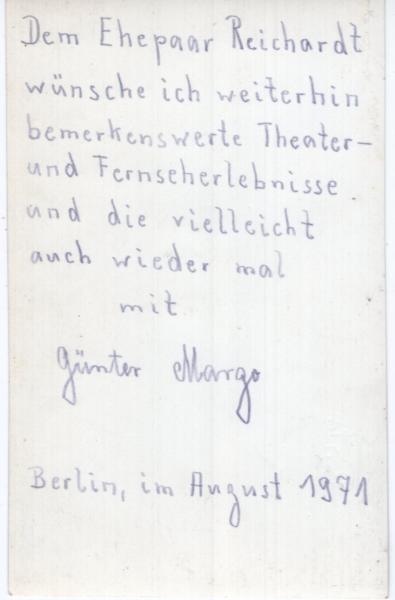 Dem Ehepaar Reichardt
wünsche ich weiterhin
bemerkenswerte Theater-
und Fernseherlebnisse
und die vielleicht
auch wieder mal
mit
Günter Margo
Berlin, im August 1971